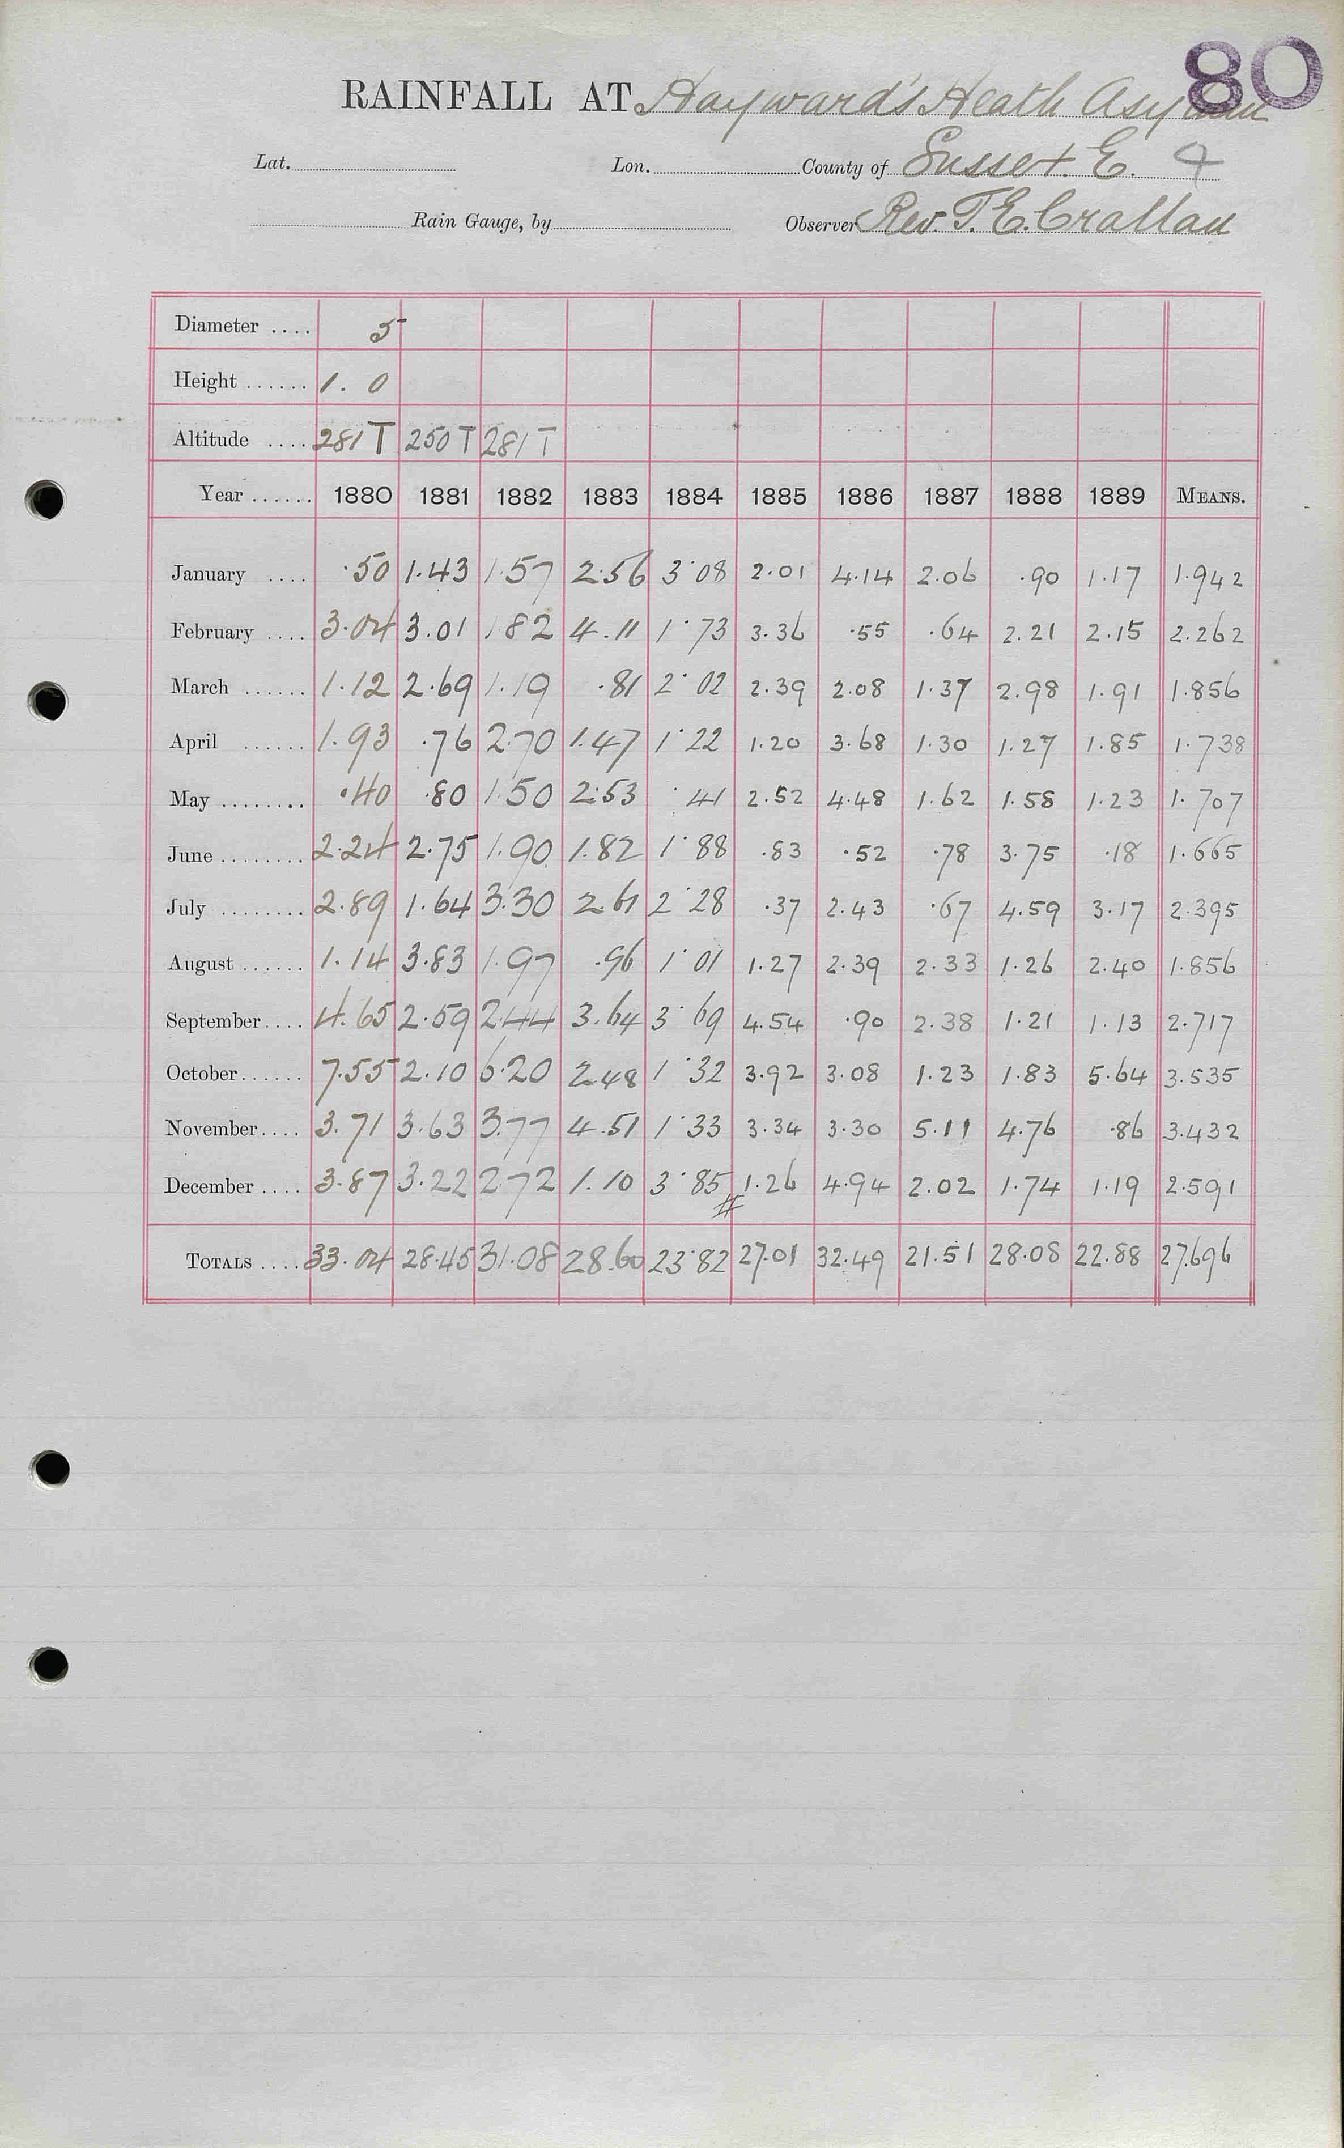 80
RAINFALL AT Hayward's Heath Asylum
Lat. Lon. County of Sussex. E. 4
Rain Gauge, by Observer Rev. T. E. Crallan
Diameter .... 5
Height ...... 1. 0
Altitude .... 281 T 250 T 281 T
Year ...... 1880 1881 1882 1883 1884 1885 1886 1887 1888 1889 MEANS.
January .... .50 1.43 1.57 2.56 3.08 2.01 4.14 2.06 .90 1.17 1.942
February .... 3.04 3.01 1.82 4.11 1.73 3.36 .55 .64 2.21 2.15 2.262
March ...... 1.12 2.69 1.19 .81 2.02 2.39 2.08 1.37 2.98 1.91 1.856
April ...... 1.93 .76 2.70 1.47 1.22 1.20 3.68 1.30 1.27 1.85 1.738
May ........ .40 .80 1.50 2.53 .41 2.52 4.48 1.62 1.58 1.23 1.707
June ........ 2.24 2.75 1.90 1.82 1.88 .83 .52 .78 3.75 .18 1.665
July ........ 2.89 1.64 3.30 2.61 2.28 .37 2.43 .67 4.59 3.17 2.395
August ...... 1.14 3.83 1.97 .96 1.01 1.27 2.39 2.33 1.26 2.40 1.856
September.... 4.65 2.59 2.44 3.64 3.69 4.54 .90 2.38 1.21 1.13 2.717
October...... 7.55 2.10 6.20 2.48 1.32 3.92 3.08 1.23 1.83 5.64 3.535
November.... 3.71 3.63 3.77 4.51 1.33 3.34 3.30 5.11 4.76 .86 3.432
December .... 3.87 3.22 2.72 1.10 3.85 1.26 4.94 2.02 1.74 1.19 2.591
#
TOTALS .... 33.04 28.45 31.08 28.60 23.82 27.01 32.49 21.51 28.08 22.88 27.696